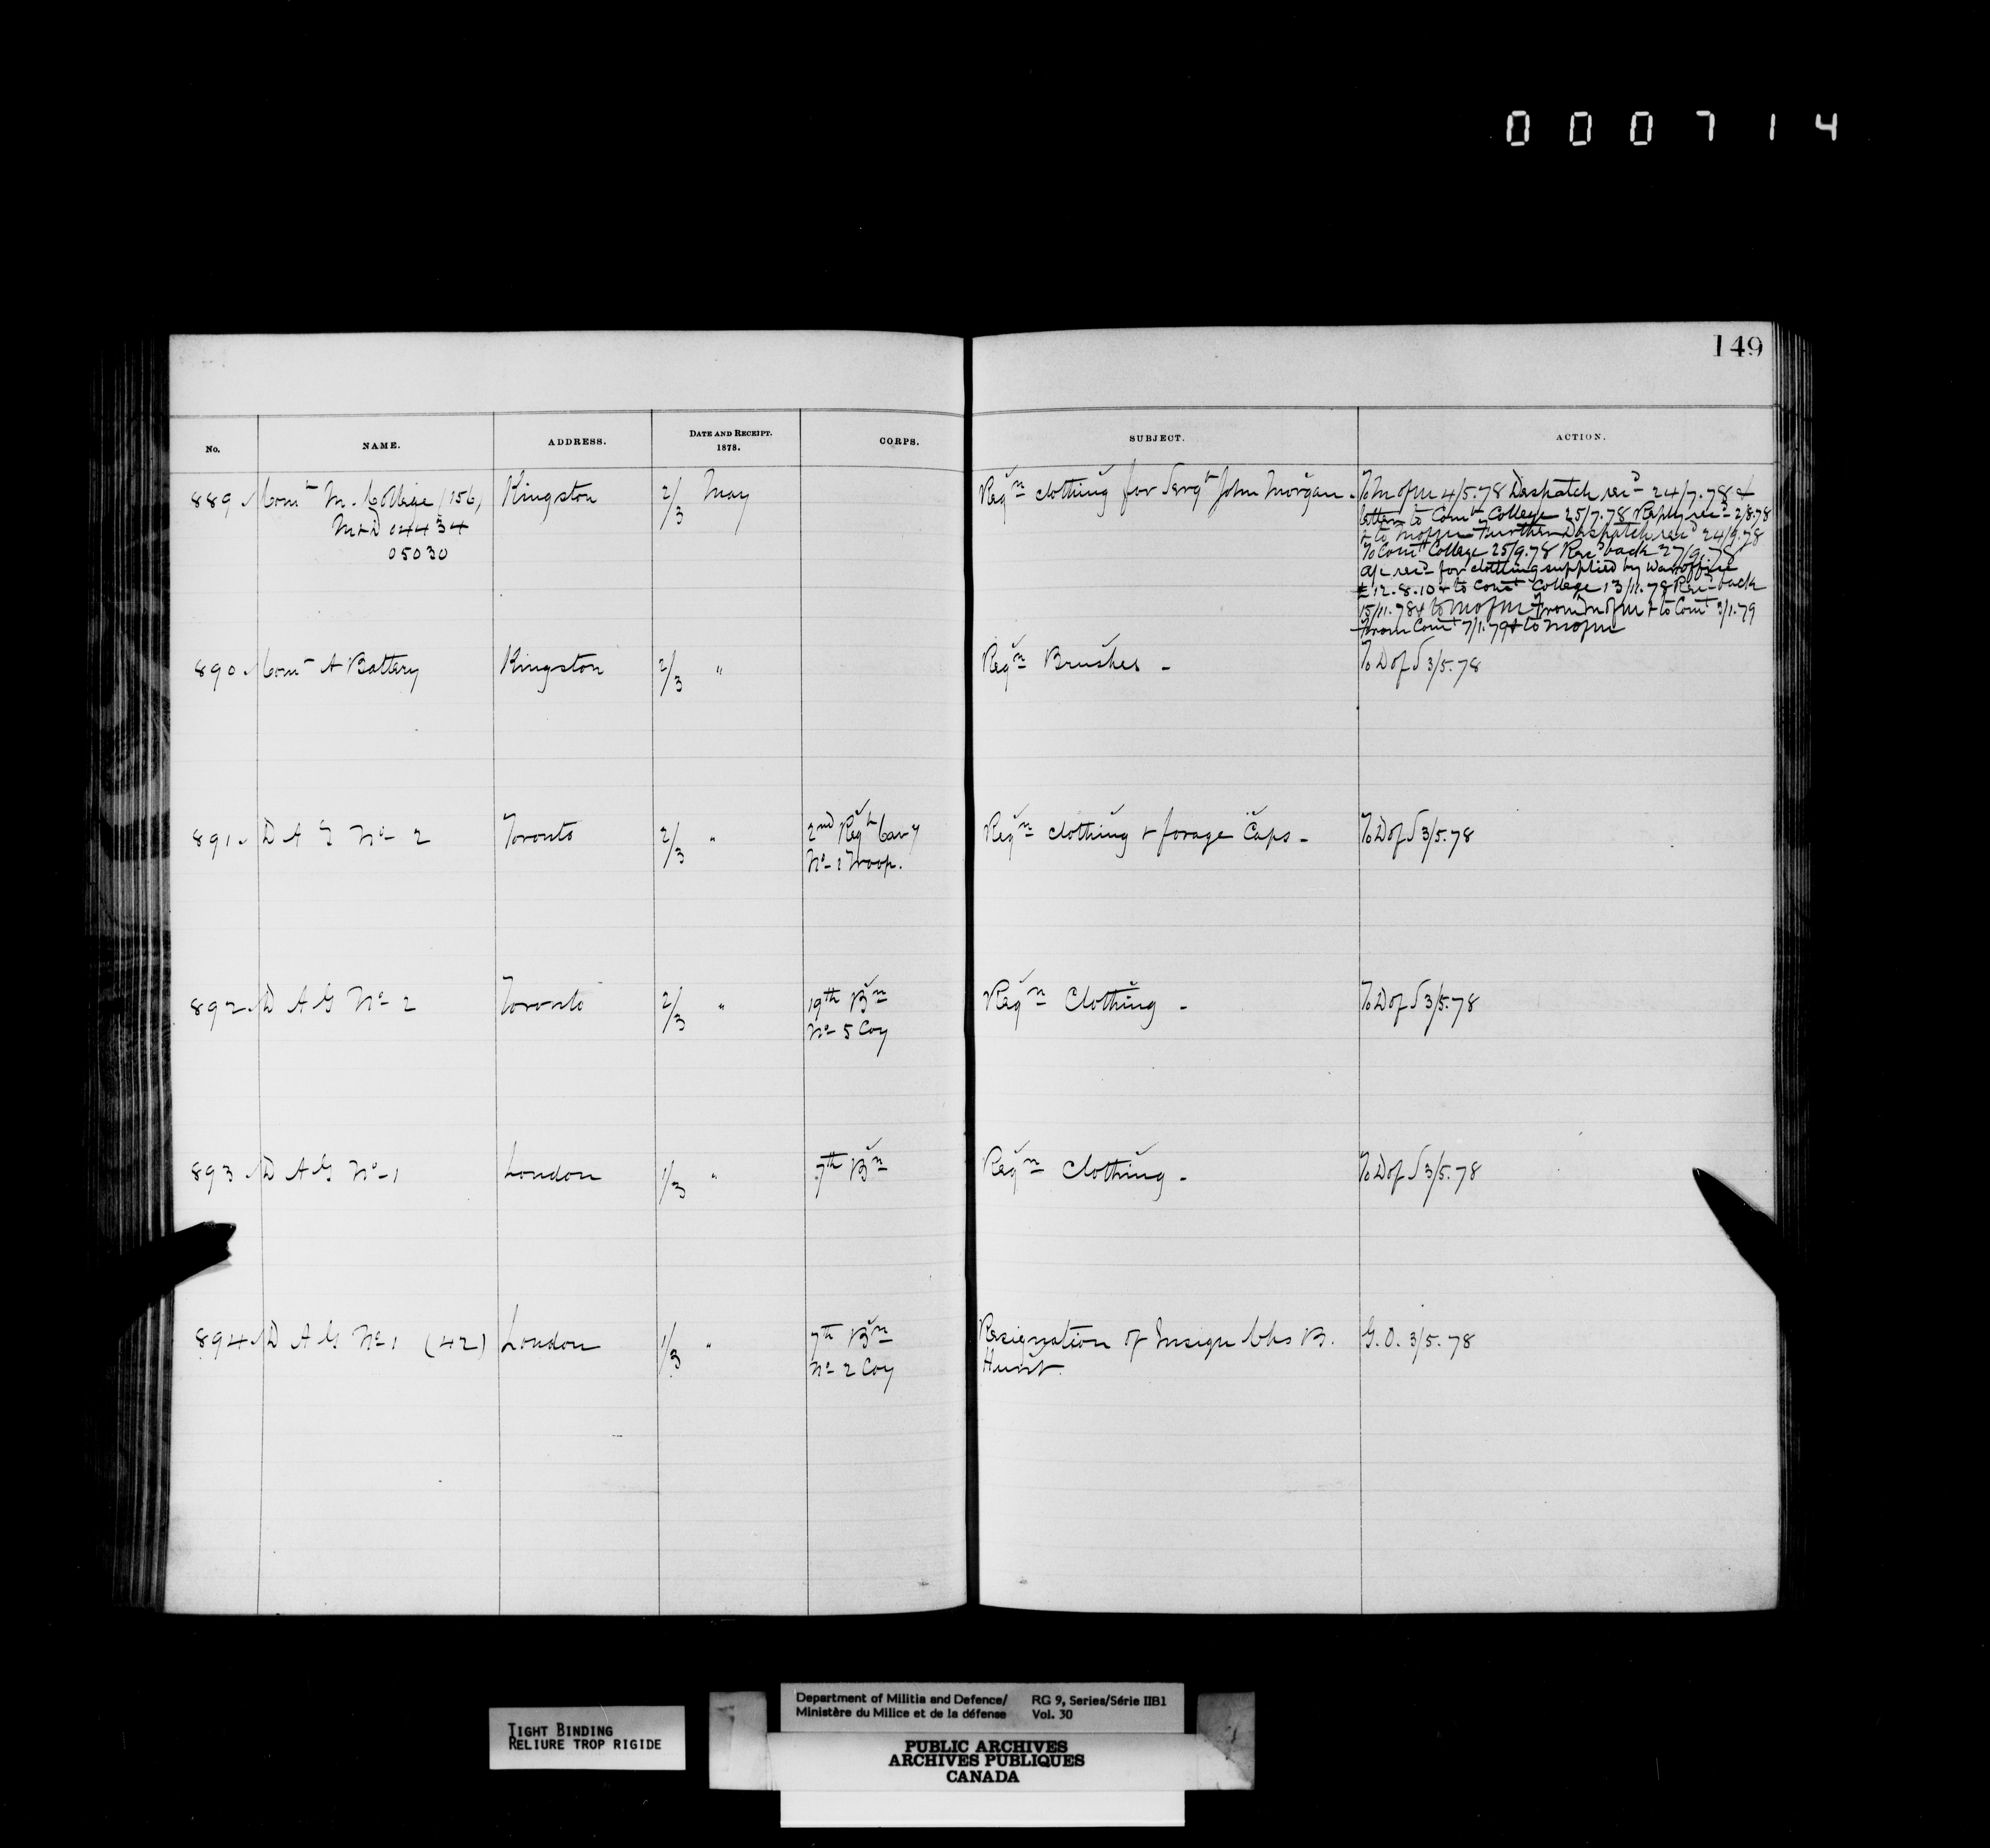 000714
149
No. NAME. ADDRESS. DATE AND RECEIPT. 1878. CORPS. SUBJECT. ACTION.
889 Comt M. College (156) Kingston 2/3 May Reqn clothing for Sergt John Morgan - To M of M 4/5.78 Despatch recd 24/7.78 &
M & D 04434
05030
letter to Comt College 25/7.78 Reply recd 2/8.78
& to M of M Further Despatch recd 24/9.78
To Comt College 25/9.78 Recd back 27/9.78
a/c recd for clothing supplied by War office
£12.8.10 & to Comt College 13/11.78 Recd back
15/11.78 & to M of M From M of M & to Comt 3/1.79
From Comt 7/1.79 & to M of M
890 Comt A Battery Kingston 2/3 " Reqn Brushes - To D of S 3/5.78
891 D A G No 2 Toronto 2/3 " 2nd Regt Cavy Reqn clothing & forage Caps - To D of S 3/5.78
No 1 Troop.
892 D A G No 2 Toronto 2/3 " 19th Bn Reqn Clothing - To D of S 3/5.78
No 5 Coy
893 D A G No 1 London 1/3 " 7th Bn Reqn Clothing - To D of S 3/5.78
894 D A G No 1 (42) London 1/3 " 7th Bn Resignation of Ensign Chs B. G.O. 3/5.78
No 2 Coy Hunt.
TIGHT BINDING
RELIURE TROP RIGIDE
Department of Militia and Defence/ RG 9, Series/Série IIB1
Ministère du Milice et de la défense Vol. 30
PUBLIC ARCHIVES
ARCHIVES PUBLIQUES
CANADA